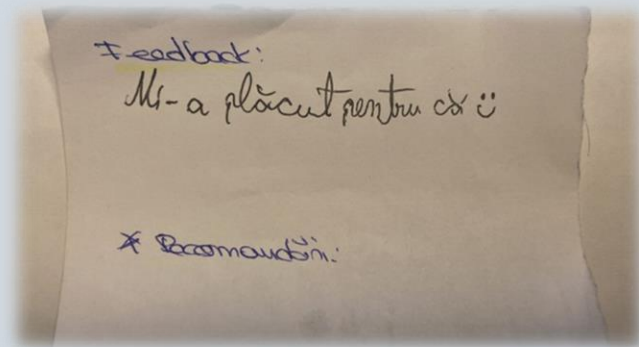 * Feedback:
Mi-a plăcut pentru că :)
* Recomandări: